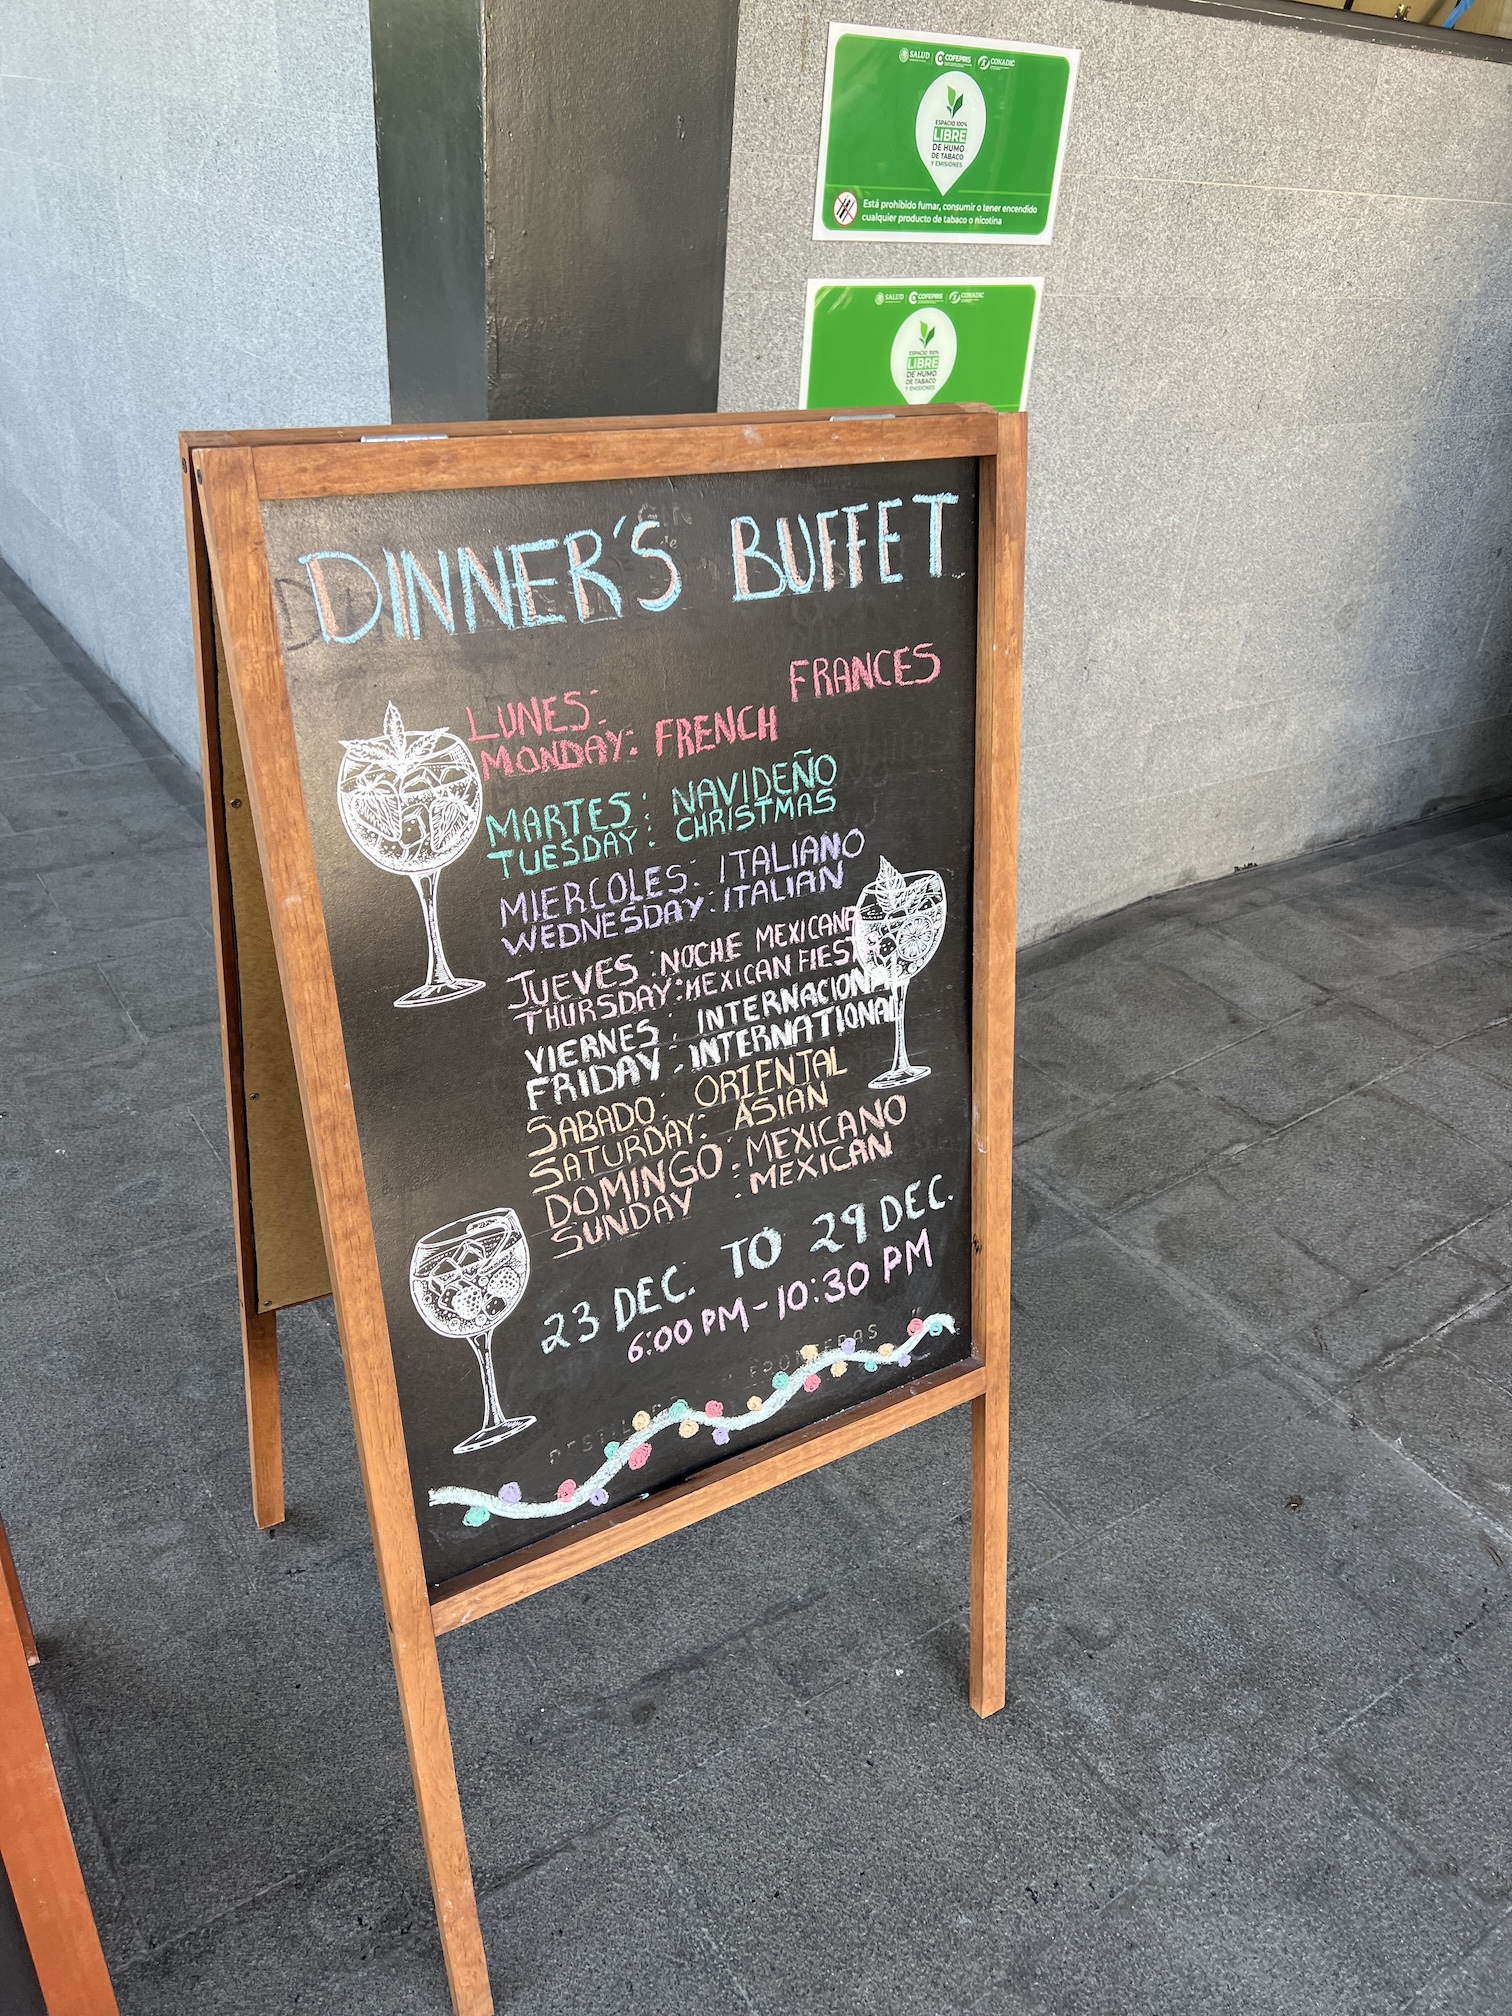 SALUD COFEPRIS CONADIC
ESPACIO 100%
LIBRE
DE HUMO
DE TABACO
Y EMISIONES
Está prohibido fumar, consumir o tener encendido
cualquier producto de tabaco o nicotina
SALUD COFEPRIS CONADIC
ESPACIO 100%
LIBRE
DE HUMO
DE TABACO
Y EMISIONES
DINNER'S BUFFET
LUNES: FRANCES
MONDAY: FRENCH
MARTES: NAVIDEÑO
TUESDAY: CHRISTMAS
MIERCOLES: ITALIANO
WEDNESDAY: ITALIAN
JUEVES: NOCHE MEXICANA
THURSDAY: MEXICAN FIESTA
VIERNES: INTERNACIONAL
FRIDAY: INTERNATIONAL
SABADO: ORIENTAL
SATURDAY: ASIAN
DOMINGO: MEXICANO
SUNDAY: MEXICAN
23 DEC. TO 29 DEC.
6:00 PM - 10:30 PM
FRONTERAS